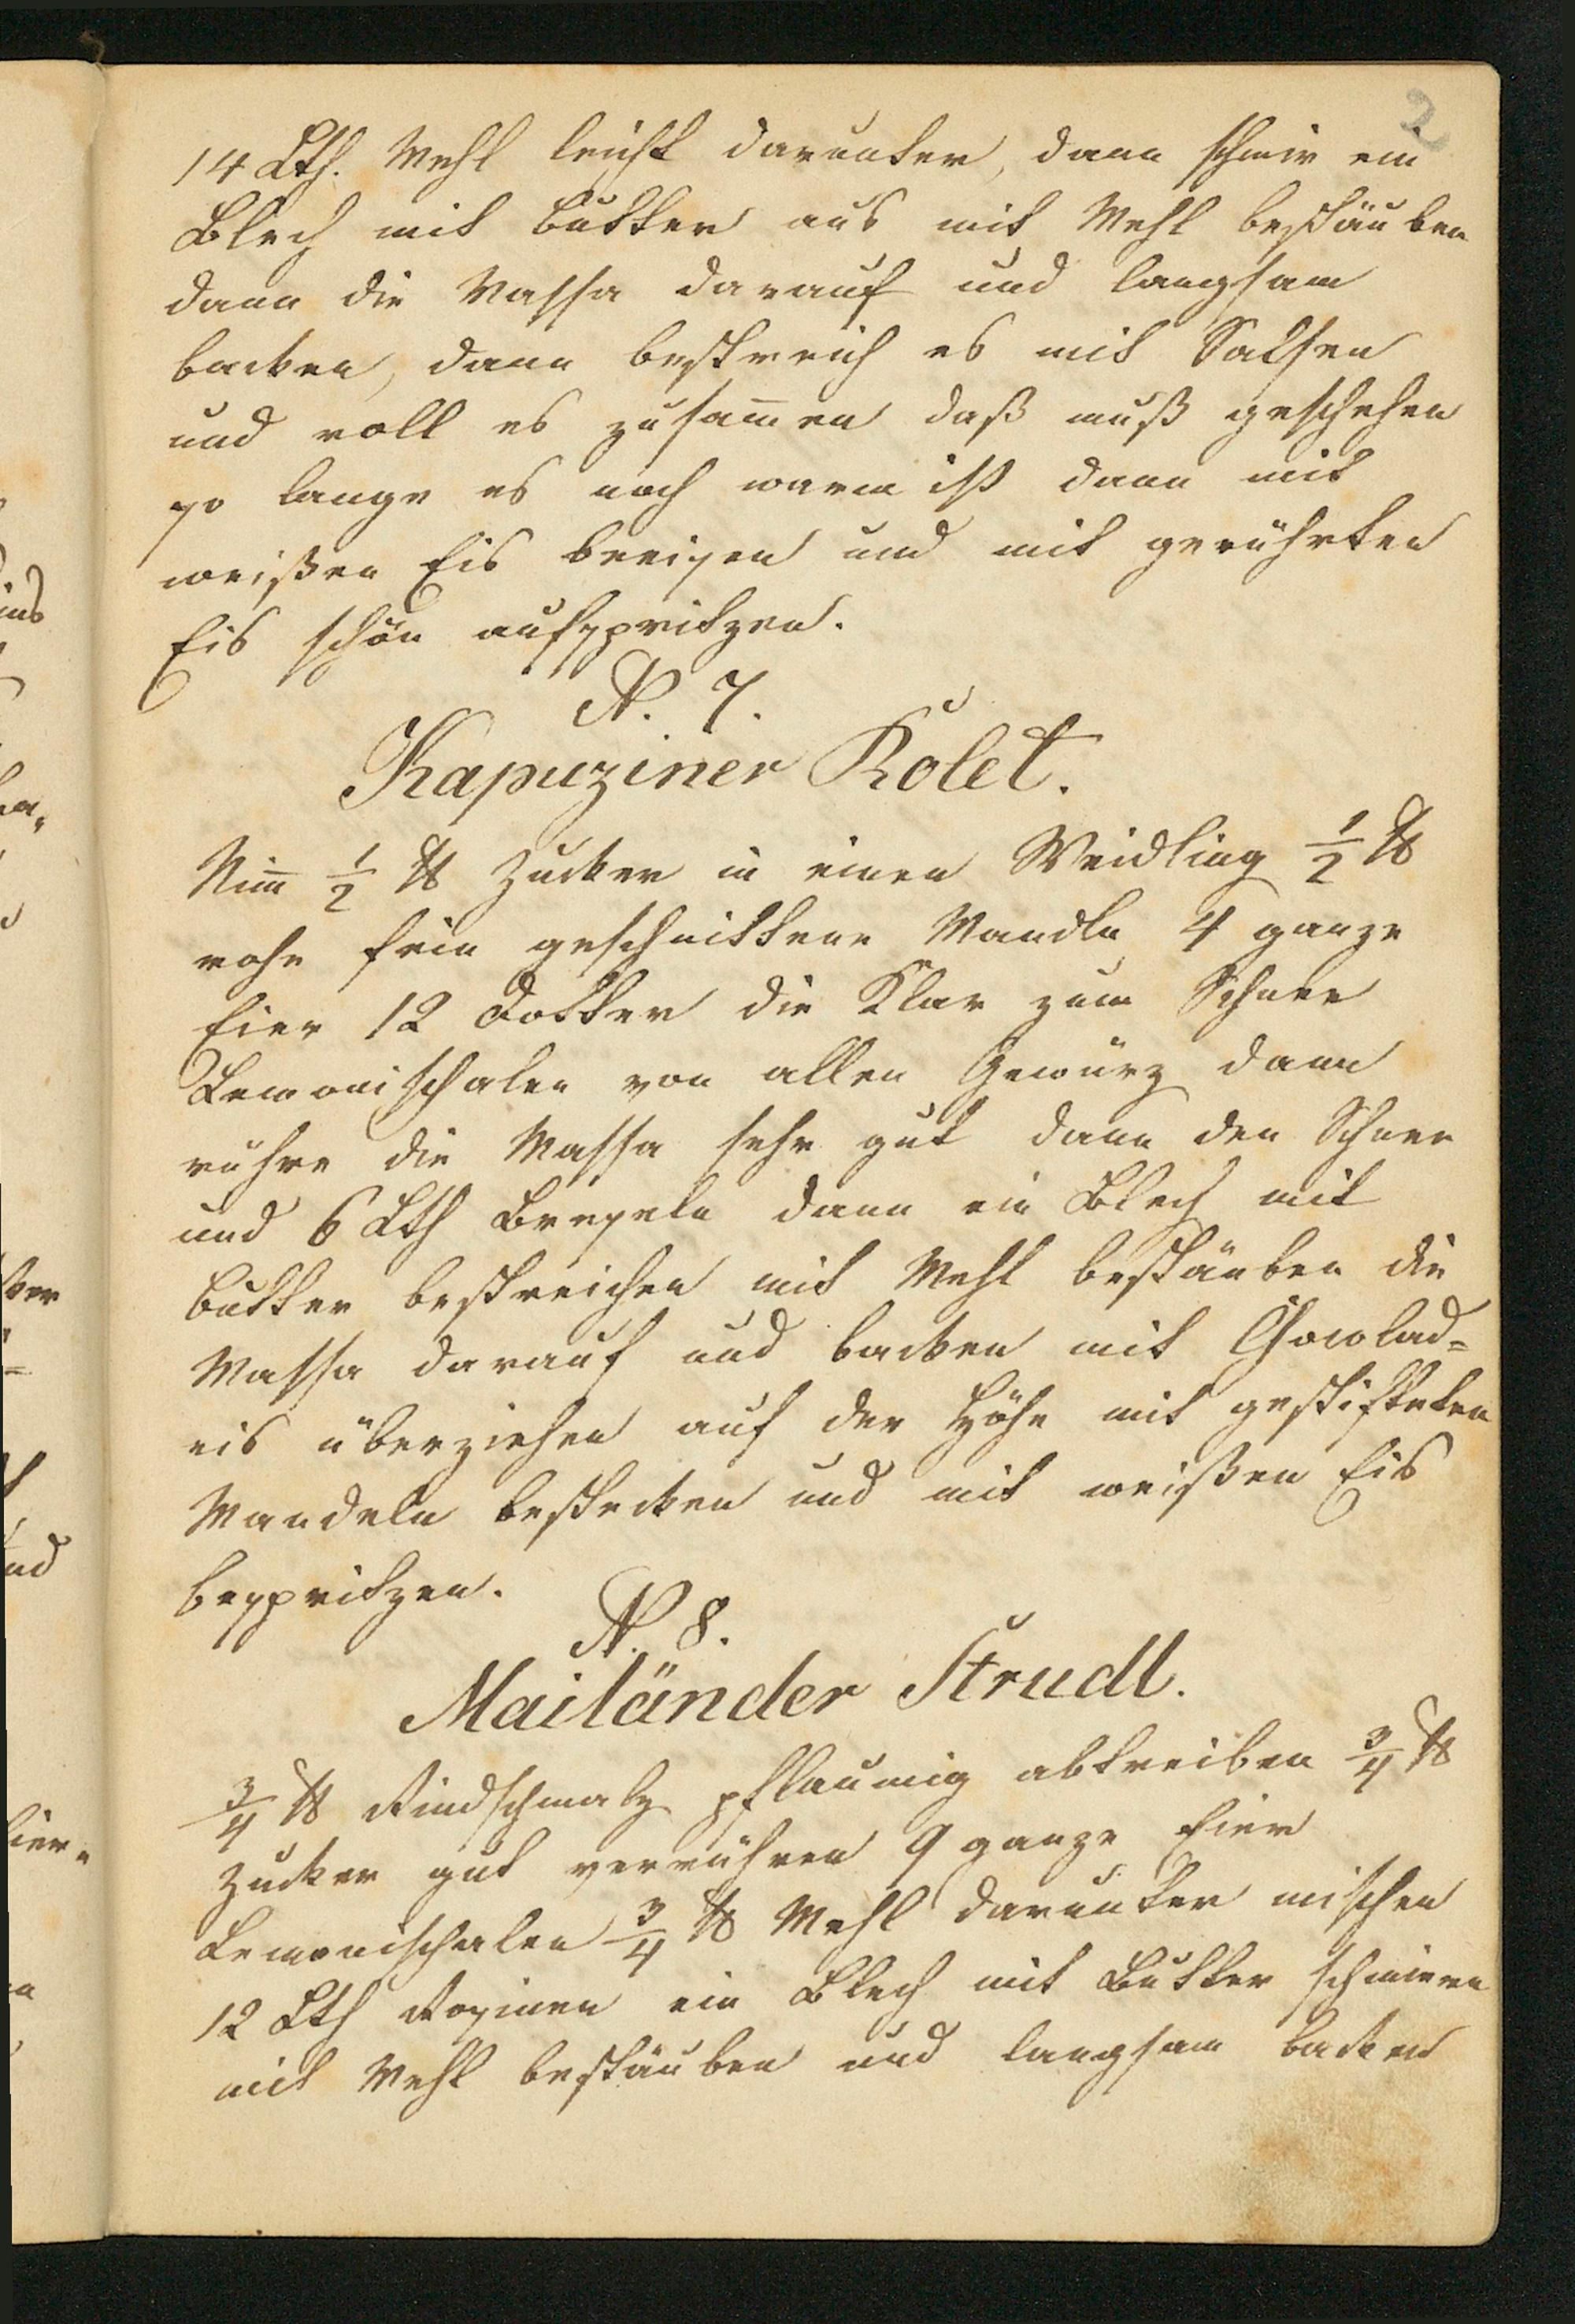 2
14 Lth. Mehl leicht darunter, dann schmir ein
Blech mit Butter aus mit Mehl bestäuben
dann die Massa darauf und langsam
backen, dann bestreich es mit Salsen
und roll es zusam̄en daß muß geschehen
so lange es noch warm ist dann mit
weißen Eis beeisen und mit gerührten
Eis schön aufspritzen.
N. 7.
Kapuziner Kolet.
Nim̄ 1/2 ℔ Zucker in einen Weidling 1/2 ℔
rohe fein geschnittene Mandln 4 ganze
Eier 12 Dotter die Klar zum Schnee
Lemonischalen von allen Gewürz dann
rühre die Massa sehr gut dann den Schnee
und 6 Lth Bröseln dann ein Blech mit
Butter bestreichen mit Mehl bestäuben die
Massa darauf und backen mit Chocolad=
eis überziehen auf der Höhe mit gestifteten
Mandeln bestecken und mit weißen Eis
bespritzen.
N. 8.
Mailänder Strudl.
3/4 ℔ Rindschmalz pflaumig abtreiben 3/4 ℔
Zucker gut verrühren 9 ganze Eier
Lemonischalen 3/4 ℔ Mehl darunter mischen
12 Lth Rosinen ein Blech mit Butter schmieren
mit Mehl bestäuben und langsam backen